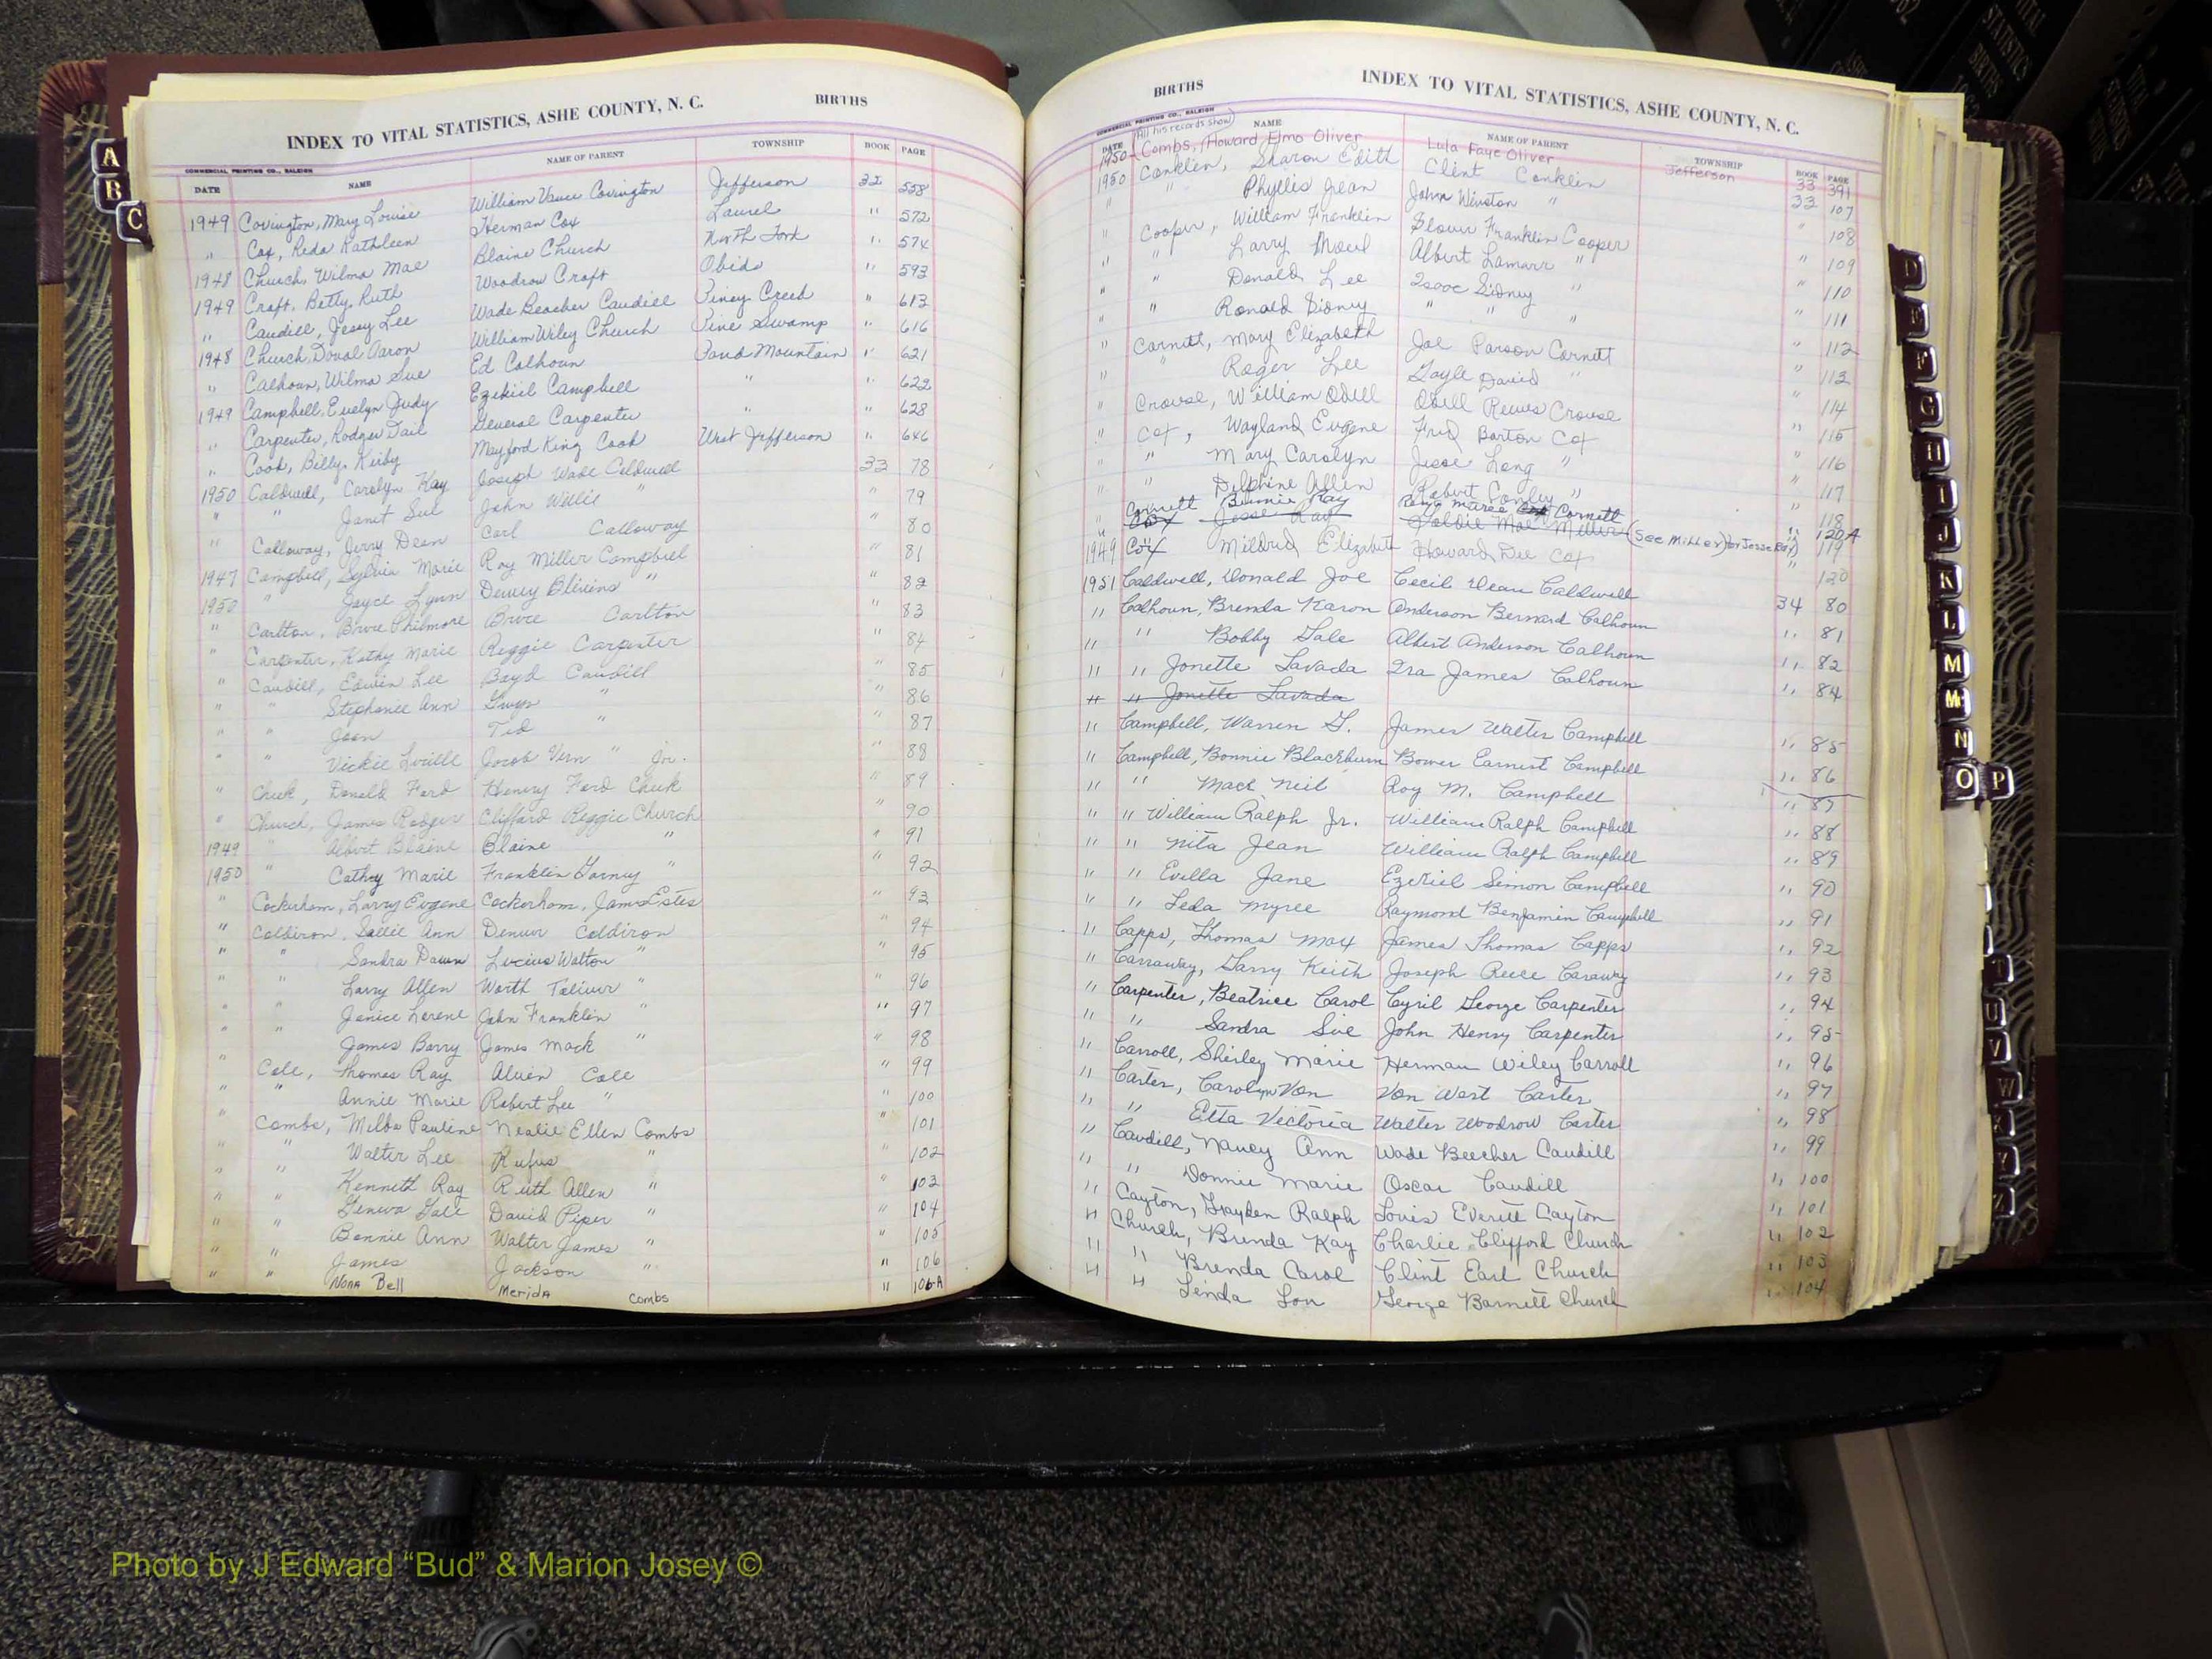 A
B
C
INDEX TO VITAL STATISTICS, ASHE COUNTY, N. C. BIRTHS
COMMERCIAL PRINTING CO., RALEIGH
DATE NAME NAME OF PARENT TOWNSHIP BOOK PAGE
1949 Covington, Mary Louise William Vance Covington Jefferson 32 558
" Cox, Reda Kathleen Herman Cox Laurel " 572
1948 Church, Wilma Mae Blaine Church North Fork " 574
1949 Craft, Betty Ruth Woodrow Craft Obids " 593
" Caudill, Jessy Lee Wade Beacher Caudill Piney Creek " 613
1948 Church, Doval Aaron William Wiley Church Pine Swamp " 616
" Calhoun, Wilma Sue Ed Calhoun Pond Mountain " 621
1949 Campbell, Evelyn Judy Ezekiel Campbell " " 622
" Carpenter, Rodger Dail General Carpenter " " 628
" Cook, Billy Kirby Mayford King Cook West Jefferson " 646
1950 Caldwell, Carolyn Kay Joseph Wade Caldwell 33 78
" " Janet Sue John Willie " " 79
" Calloway, Jerry Dean Carl Calloway " 80
1947 Campbell, Sylvia Marie Roy Miller Campbell " 81
1950 " Joyce Lynn Dewey Blevins " " 82
" Carlton, Bruce Philmore Bruce Carlton " 83
" Carpenter, Kathy Marie Reggie Carpenter " 84
" Caudill, Edwin Lee Boyd Caudill " 85
" " Stephanie Ann Gwyn " " 86
" " Joan Ted " " 87
" " Vickie Lucille Jacob Vern " Jr. " 88
" Cheek, Donald Ford Henry Ford Cheek " 89
" Church, James Rodger Clifford Reggie Church " 90
1949 " Albert Blaine Blaine " 91
1950 " Cathy Marie Franklin " " 92
" Cockerham, Larry Eugene Cockerham, James Estes " 93
" Coldiron, Sallie Ann Denver Coldiron " 94
" " Sandra Dawn Lucius Walton " " 95
" " Larry Allen Worth Toliver " " 96
" " Janice Lorene John Franklin " " 97
" " James Barry James Mack " " 98
" Cole, Thomas Ray Alvin Cole " 99
" " Annie Marie Robert Lee " " 100
" Combs, Melba Pauline Nealie Ellen Combs " 101
" " Walter Lee Rufus " " 102
" " Kenneth Ray Ruth Allen " " 103
" " Geneva Gale David Piper " " 104
" " Bonnie Ann Walter James " " 105
" " James Jackson " " 106
" " Nora Bell Merida Combs " 106-A
BIRTHS INDEX TO VITAL STATISTICS, ASHE COUNTY, N. C.
COMMERCIAL PRINTING CO., RALEIGH
DATE NAME NAME OF PARENT TOWNSHIP BOOK PAGE
(All his records show)
1950 Combs, (Howard Elmo Oliver Lula Faye Oliver Jefferson 33 391
1950 Conklin, Sharon Edith Clint Conklin 33 107
" " Phyllis Jean John Winston " " 108
" Cooper, William Franklin Franklin Cooper " 109
" " Larry Albert Lamarr " " 110
" " Donald Lee Isaac Sidney " " 111
" " Ronald Sidney " " " " 112
" Cornett, Mary Elizabeth Joe Parson Cornett " 113
" " Roger Lee Gayle David " " 114
" Crouse, William Odell Odell Reeves Crouse " 115
" Cox, Wayland Eugene Fred Barton Cox " 116
" " Mary Carolyn Jesse Long " " 117
" " Delphine Allen Robert Conley " " 118
" Cornett Bonnie Ray Cornett 120A
Cox Jesse Ray Goldie Mae Miller (See Miller) for Jesse Ray) " 119
1949 Cox Mildred Elizabeth Howard Dee Cox " 120
1951 Caldwell, Donald Joe Cecil Dean Caldwell 34 80
" Calhoun, Brenda Karon Anderson Bernard Calhoun " 81
" " Bobby Gale Albert Anderson Calhoun " 82
" " Jonette Lavada Ira James Calhoun " 84
" " Jonette Lavada
" Campbell, Warren G. James Walter Campbell " 85
" Campbell, Bonnie Blackburn Bower Earnest Campbell " 86
" " Mack Neil Roy M. Campbell " 87
" " William Ralph Jr. William Ralph Campbell " 88
" " Nita Jean William Ralph Campbell " 89
" " Evilla Jane Ezekiel Simon Campbell " 90
" " Leda Myree Raymond Benjamin Campbell " 91
" Capps, Thomas Max James Thomas Capps " 92
" Carraway, Garry Keith Joseph Reece Caraway " 93
" Carpenter, Beatrice Carol Cyril George Carpenter " 94
" " Sandra Sue John Henry Carpenter " 95
" Carroll, Shirley Marie Herman Wiley Carroll " 96
" Carter, Carolyn Von Von West Carter " 97
" " Etta Victoria Walter Woodrow Carter " 98
" Caudill, Nancy Ann Wade Beecher Caudill " 99
" " Donnie Marie Oscar Caudill " 100
" Cayton, Grayden Ralph Louis Everett Cayton " 101
" Church, Brenda Kay Charlie Clifford Church " 102
" " Brenda Carol Clint Earl Church " 103
" " Linda Lou George Barnett Church " 104
D
E
F
G
H
I
J
K
L
M
Mc
N
O
P
T
U
V
W
VITAL STATISTICS BIRTHS
Photo by J Edward “Bud” & Marion Josey ©